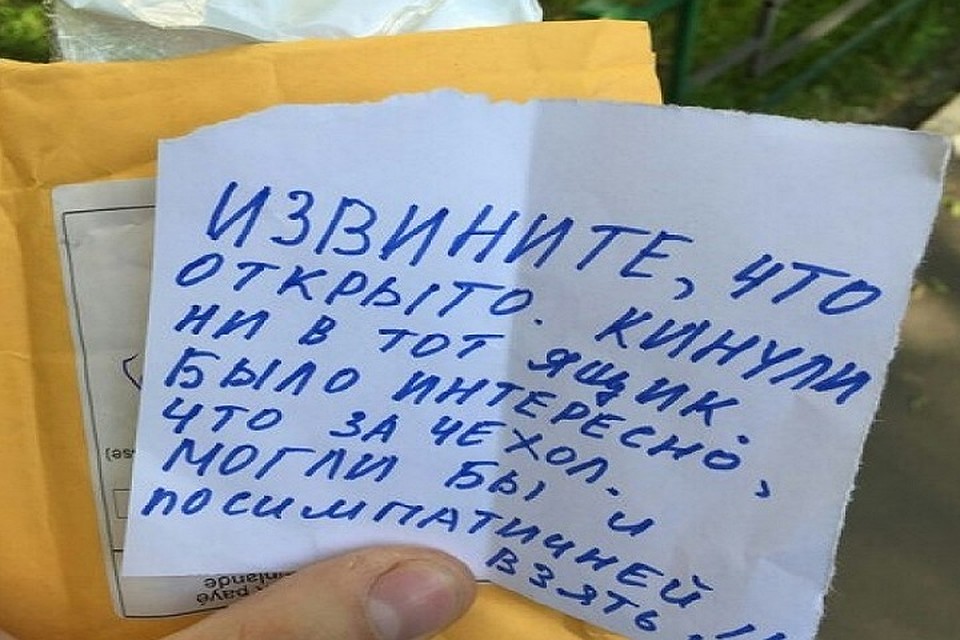 ИЗВИНИТЕ, ЧТО
ОТКРЫТО. КИНУЛИ
НИ В ТОТ ЯЩИК.
БЫЛО ИНТЕРЕСНО,
ЧТО ЗА ЧЕХОЛ.
МОГЛИ БЫ И
ПОСИМПАТИЧНЕЙ
ВЗЯТЬ!!
payé